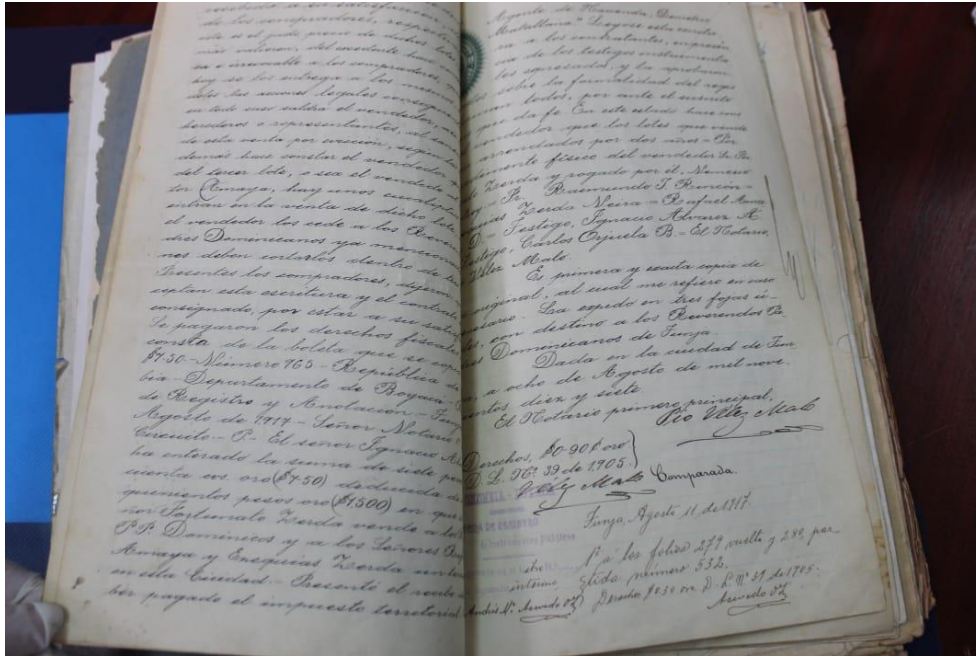 recibido a su satisfacción
de los compradores, respecto
este es el justo precio de dichos lotes
más valieren, del excedente hace
sa e irrevocable a los compradores,
hoy se los entrega a los mismos
dolos las acciones legales consiguientes
en todo caso saldrá el vendedor,
herederos o representantes, al
de esta venta por evicción, según
demás hace constar el vendedor
del tercer lote, o sea el vendido
tor Amaya, hay unos eucaliptus
entran en la venta de dicho lote
el vendedor los cede a los Reveren
dres Domenicanos ya menciona
nes deben cortarlos dentro de tres
Presentes los compradores, dijeron
ceptan esta escritura y el contrato
consignado, por estar a su satis
Se pagaron los derechos fiscales
consta de la boleta que se copia
$7.50 - Número 765 - República de
bia - Departamento de Boyacá
de Registro y Anotación - Tunja
Agosto de 1917 - Señor Notario
Circuito - P - El señor Ignacio A
ha enterado la suma de siete pesos
cuenta cvs. oro ($7.50) deducida de
quinientos pesos oro ($1,500) en que
ñor Fortunato Zerda vende a los
P.P. Dominicos y a los Señores
Amaya y Ezequías Zerda
en esta Ciudad - Presentó el recibo
ber pagado el impuesto territorial
Agente de Hacienda, Demetrio
Matallana" Leyose esta escritu
ra a los contratantes, en presen
cia de los testigos instrumenta
les expresados, y la aprobaron
sobre la formalidad del regis
man todos, por ante el suscrito
que da fe. En este estado hace
vendedor que los lotes que vende
arrendados por dos años - Por
dimento físico del vendedor Sr.
Zerda y rogado por él, Nemesio
Fr. Raimundo J. Rincón -
Zerda Neira - Rafael Ama
D. - Testigo, Ignacio Alvarez A
Testigo, Carlos Orjuela B. - El Notario,
Vélez Malo.
Es primera y exacta copia de
original, al cual me refiero en caso
sario. La expido en tres fojas ú
les, con destino a los Reverendos Pa
Domenicanos de Tunja.
Dada en la ciudad de Tun
ja, a ocho de Agosto de mil nove
cientos diez y siete
El Notario primero principal,
Pío Vélez Malo
Derechos, $0-90 oro
D. L. Nº 39 de 1.905.
Vélez Malo Comparada.
Tunja, Agosto 11 de 1917.
a los folios 279 vuelto y 280, par
tida número 532.
Derechos $0.30 oro D. L. Nº 39 de 1905.
Acevedo